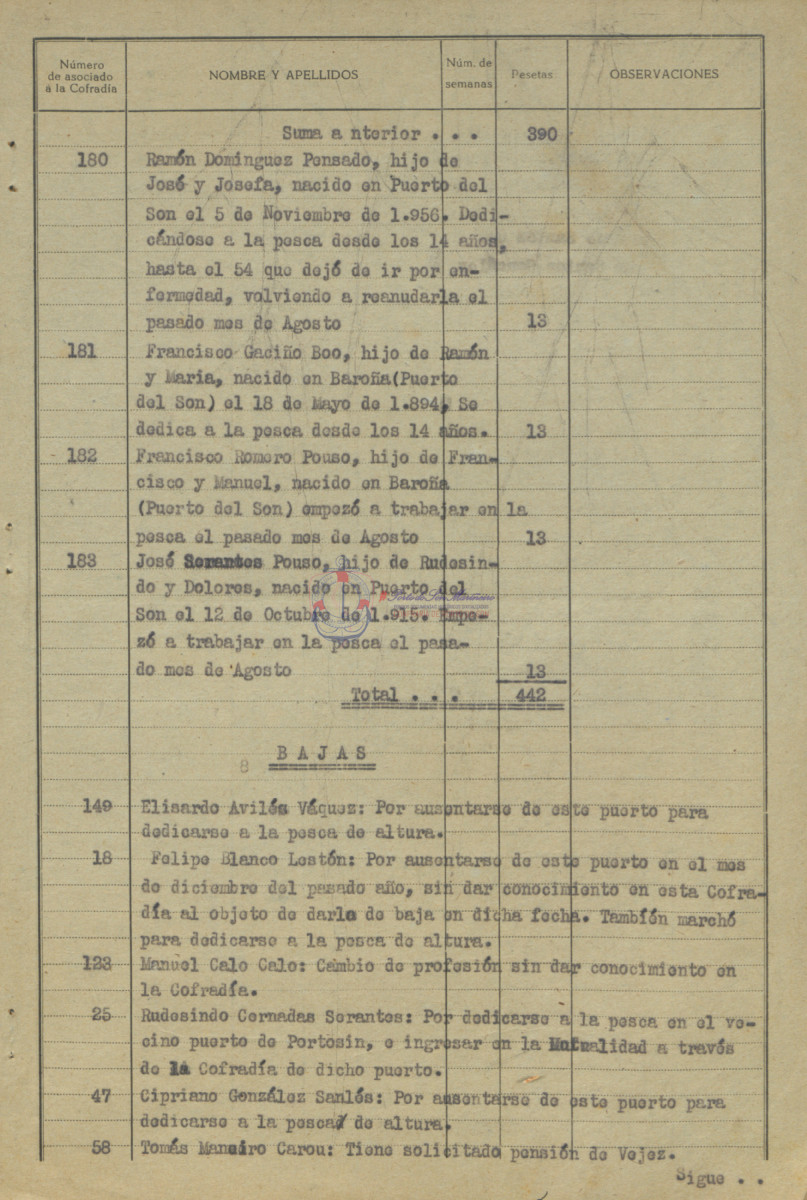 Número de asociado a la Cofradía NOMBRE Y APELLIDOS Núm. de semanas Pesetas OBSERVACIONES
Suma anterior . . . 390
180 Ramón Dominguez Pensado, hijo de
José y Josefa, nacido en Puerto del
Son el 5 de Noviembre de 1.956. Dedi-
cándose a la pesca desde los 14 años,
hasta el 54 que dejó de ir por en-
fermedad, volviendo a reanudarla el
pasado mes de Agosto 13
181 Francisco Gaciño Boo, hijo de Ramón
y Maria, nacido en Baroña(Puerto
del Son) el 18 de Mayo de 1.894, Se
dedica a la pesca desde los 14 años. 13
182 Francisco Romero Pouso, hijo de Fran-
cisco y Manuel, nacido en Baroña
(Puerto del Son) empezó a trabajar en la
pesca el pasado mes de Agosto 13
183 José Sorantes Pouso, hijo de Rudesin-
do y Dolores, nacido en Puerto del
Son el 12 de Octubre de 1.915. Empe-
zó a trabajar en la pesca el pasa-
do mes de Agosto 13
Total . . . 442
B A J A S
8
149 Elisardo Avilés Váquez: Por ausentarse de este puerto para
dedicarse a la pesca de altura.
18 Felipe Blanco Lestón: Por ausentarse de este puerto en el mes
de diciembre del pasado año, sin dar conocimiento en esta Cofra-
día al objeto de darle de baja en dicha fecha. También marchó
para dedicarse a la pesca de altura.
123 Manuel Calo Calo: Cambio de profesión sin dar conocimiento en
la Cofradía.
25 Rudesindo Cernadas Sorantes: Por dedicarse a la pesca en el ve-
cino puerto de Portosin, e ingresar en la Mutualidad a través
de la Cofradía de dicho puerto.
47 Cipriano González Sanlés: Por ausentarse de este puerto para
dedicarse a la pesca de altura.
58 Tomás Maneiro Carou: Tiene solicitado pensión de Vejez.
Sigue . .